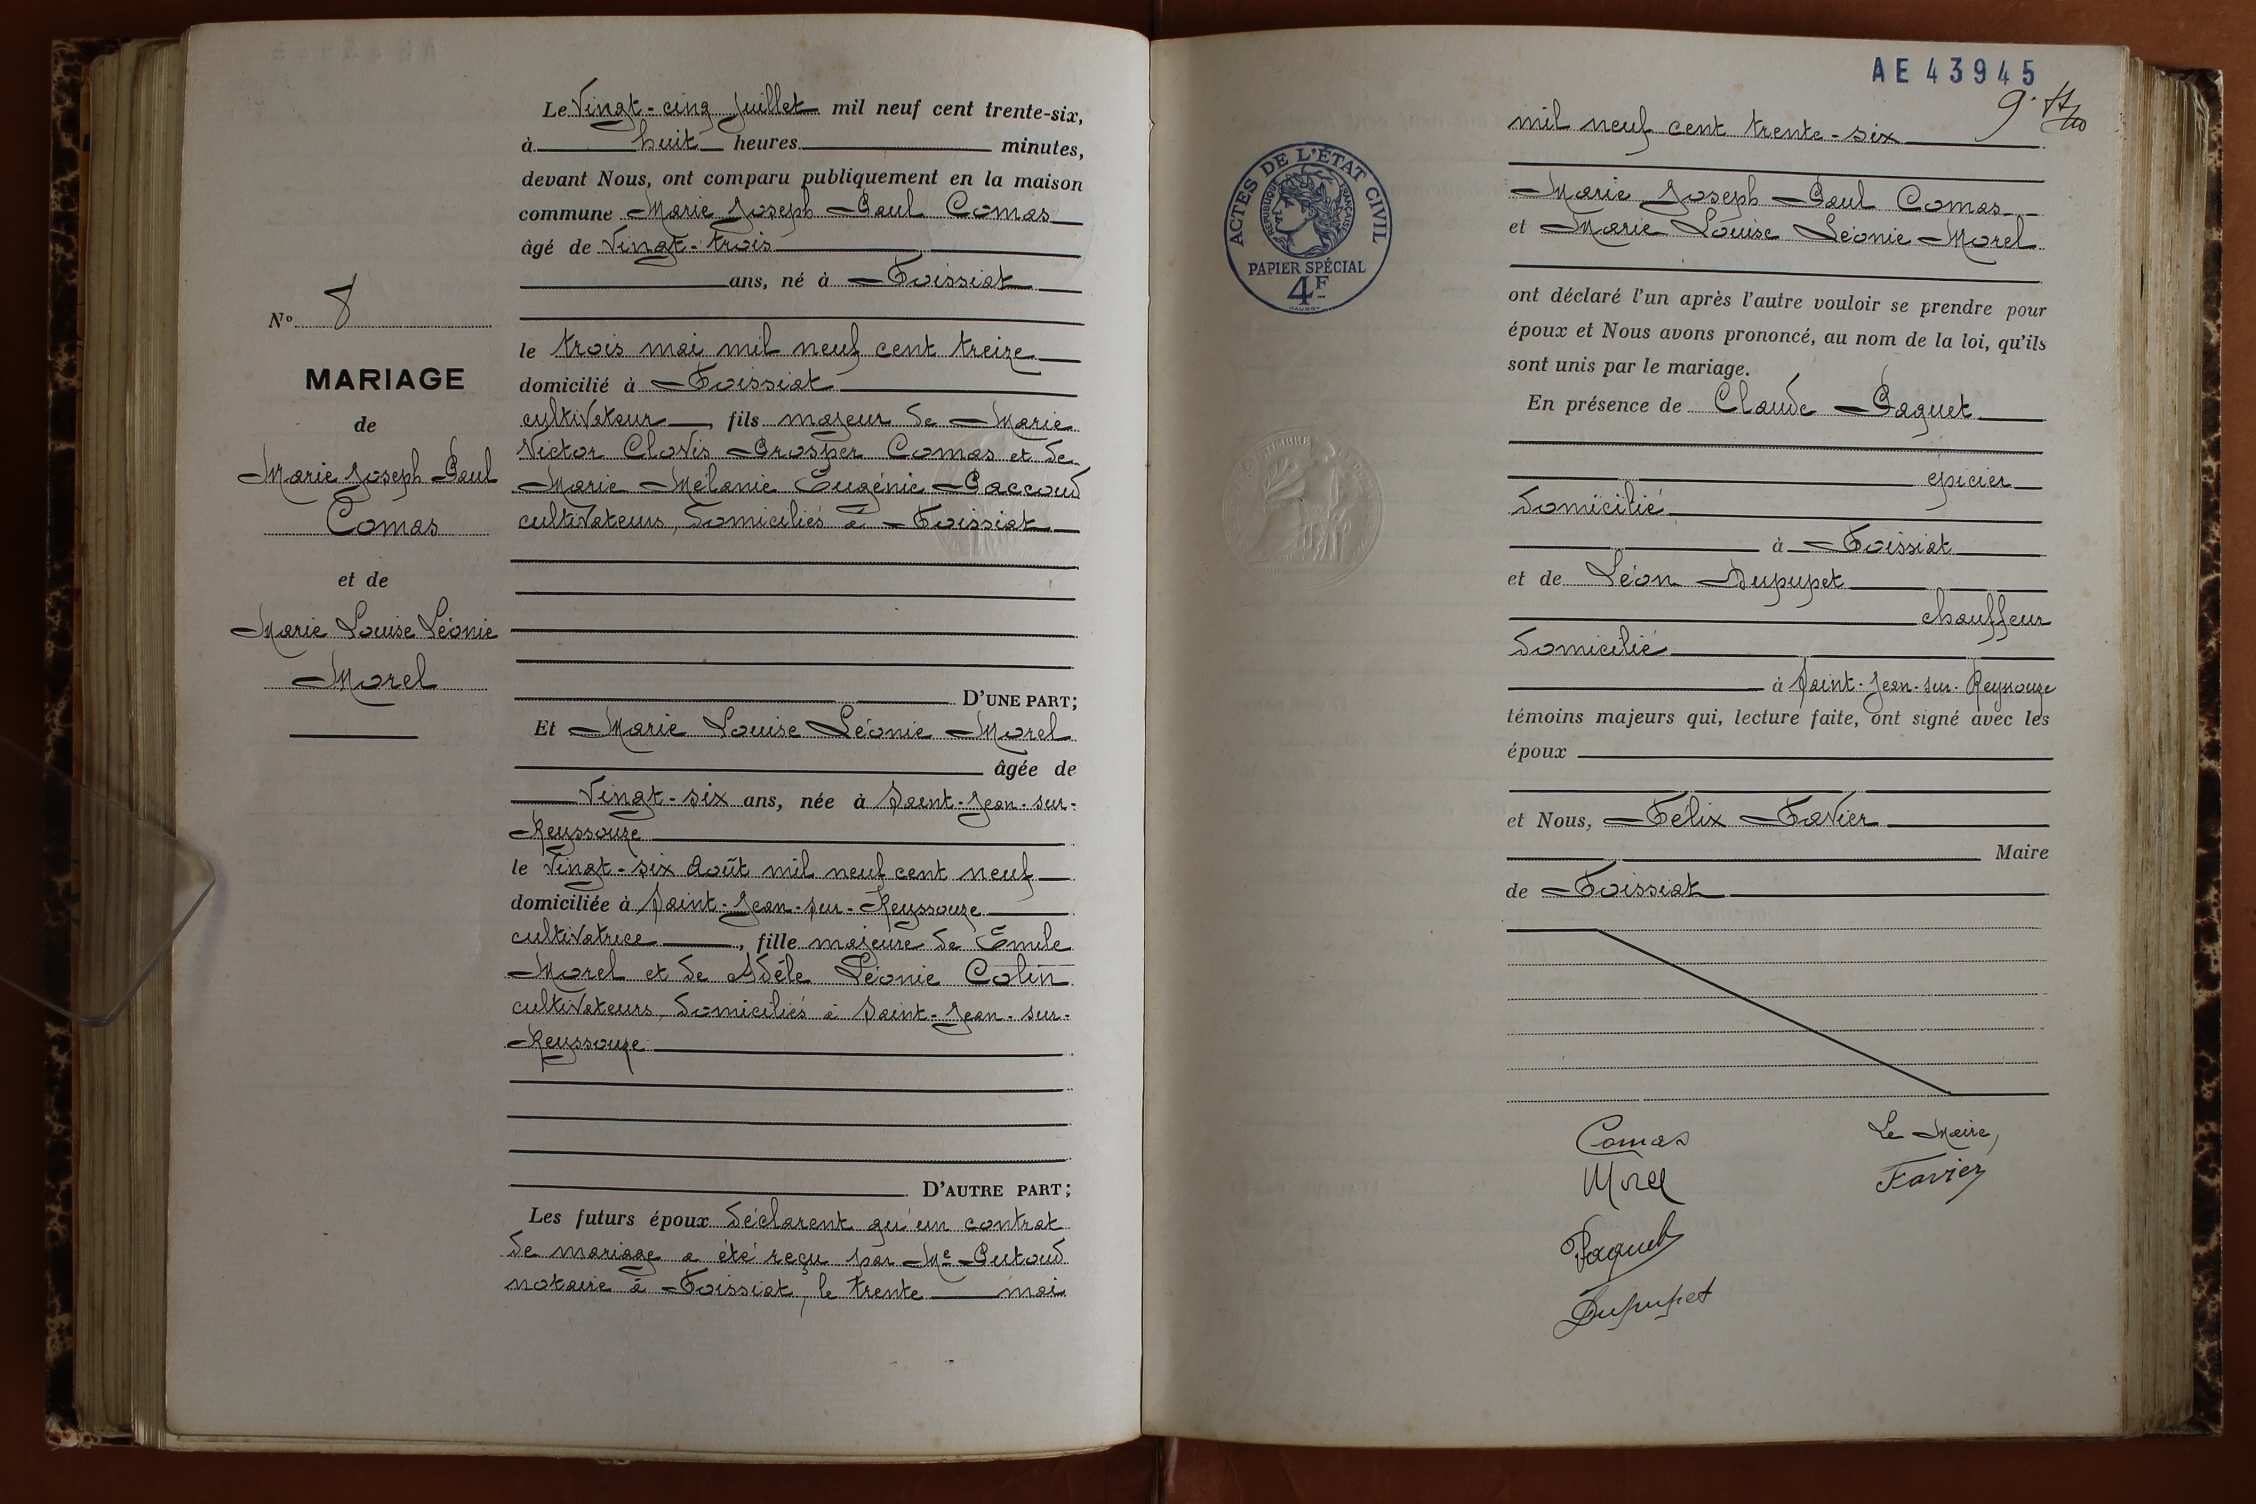 Le Vingt-cinq Juillet mil neuf cent trente-six,
à huit heures minutes,
devant Nous, ont comparu publiquement en la maison
commune Marie Joseph Paul Comas
âgé de Vingt-trois
ans, né à Foissiat
le trois mai mil neuf cent treize
domicilié à Foissiat
cultivateur, fils majeur de Marie
Victor Clovis Prosper Comas et de
Marie Mélanie Eugénie Paccoud
cultivateurs, domiciliés à Foissiat
D'UNE PART;
Et Marie Louise Léonie Morel
âgée de
Vingt-six ans, née à Saint-Jean-sur-
Reyssouze
le Vingt-six Août mil neuf cent neuf
domiciliée à Saint-Jean-sur-Reyssouze
cultivatrice, fille majeure de Emile
Morel et de Adèle Léonie Colin
cultivateurs, domiciliés à Saint-Jean-sur-
Reyssouze
D'AUTRE PART;
Les futurs époux déclarent qu'un contrat
de mariage a été reçu par Me Putoud
notaire à Foissiat, le trente mai
No 8
MARIAGE
de
Marie Joseph Paul
Comas
et de
Marie Louise Léonie
Morel
AE 43945
9.
mil neuf cent trente-six
Marie Joseph Paul Comas
et Marie Louise Léonie Morel
ont déclaré l'un après l'autre vouloir se prendre pour
époux et Nous avons prononcé, au nom de la loi, qu'ils
sont unis par le mariage.
En présence de Claude Paquet
épicier
domicilié
à Foissiat
et de Léon Dupupet
chauffeur
domicilié
à Saint-Jean-sur-Reyssouze
témoins majeurs qui, lecture faite, ont signé avec les
époux
et Nous, Félix Favier
Maire
de Foissiat
Comas
Le Maire,
Morel
Favier
Paquet
Dupupet
ACTES DE L'ÉTAT CIVIL
RÉPUBLIQUE FRANÇAISE
PAPIER SPÉCIAL
4F